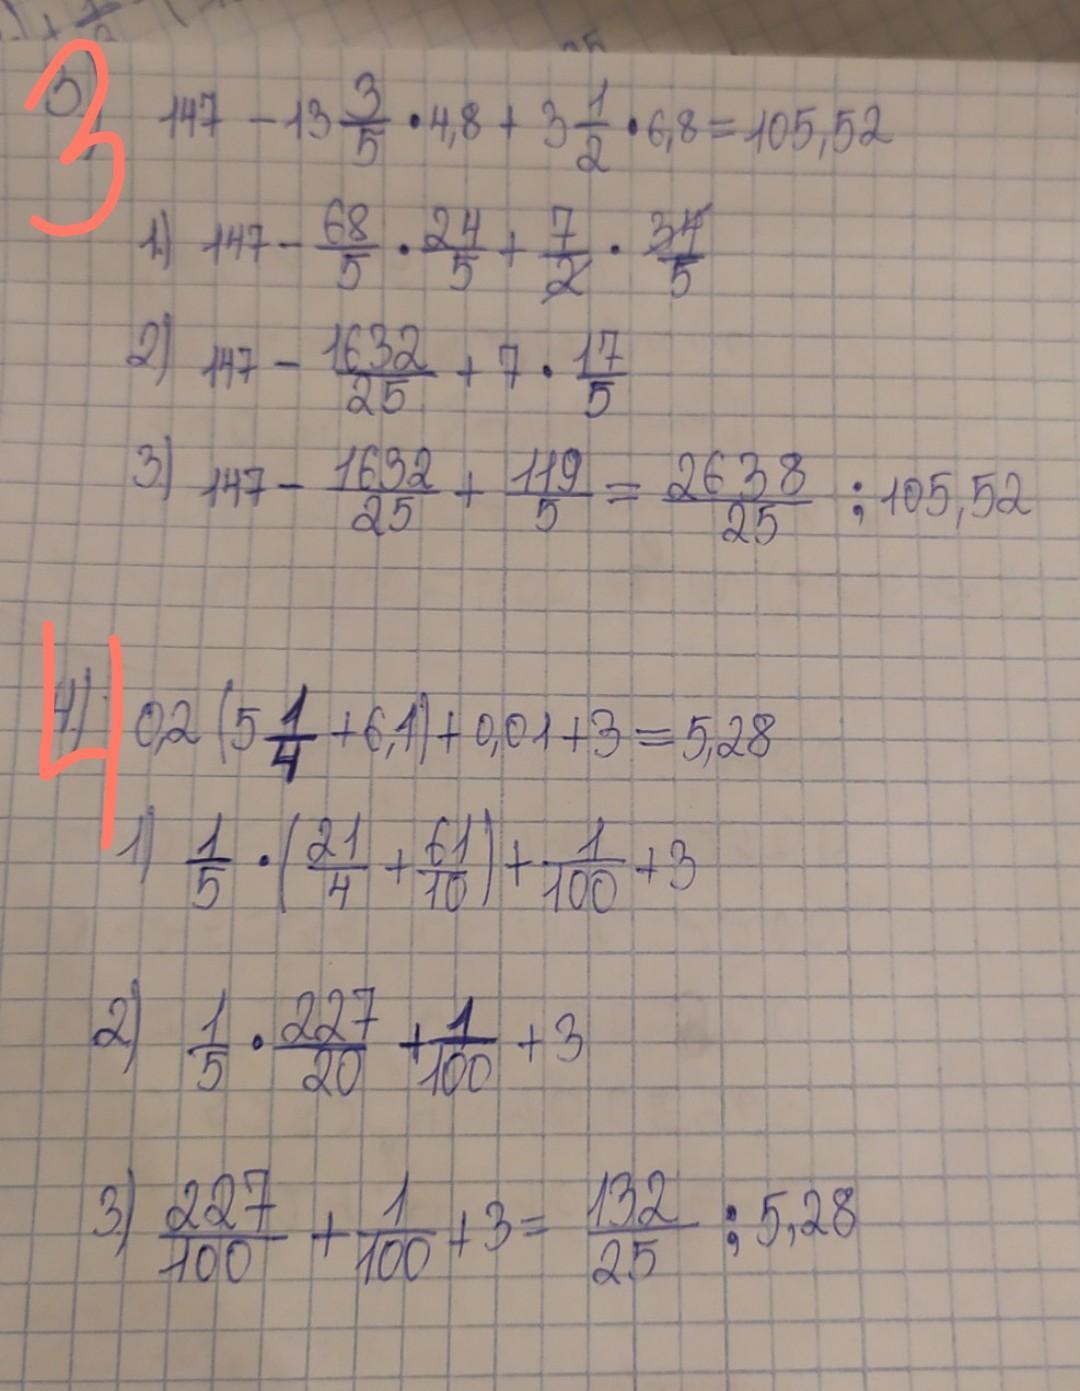 3) 147 - 13 3/5 · 4,8 + 3 1/2 · 6,8 = 105,52
1) 147 - 68/5 · 24/5 + 7/2 · 34/5
2) 147 - 1632/25 + 7 · 17/5
3) 147 - 1632/25 + 119/5 = 2638/25 ; 105,52
4) 0,2 (5 1/4 + 6,1) + 0,01 + 3 = 5,28
1) 1/5 · (21/4 + 61/10) + 1/100 + 3
2) 1/5 · 227/20 + 1/100 + 3
3) 227/100 + 1/100 + 3 = 132/25 ; 5,28